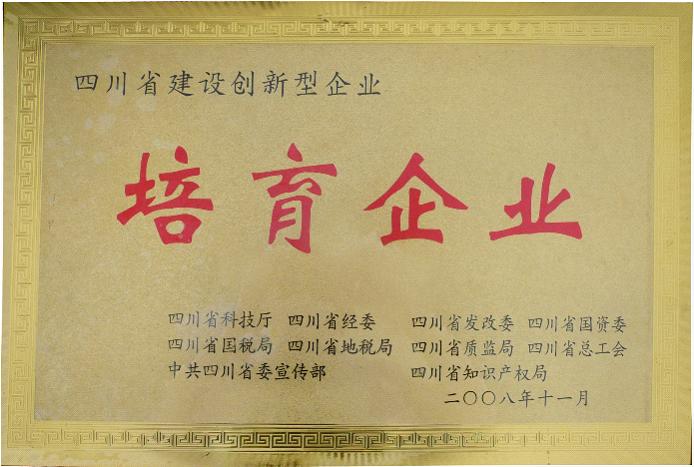 四川省建设创新型企业
培育企业
四川省科技厅 四川省经委 四川省发改委 四川省国资委
四川省国税局 四川省地税局 四川省质监局 四川省总工会
中共四川省委宣传部 四川省知识产权局
二〇〇八年十一月